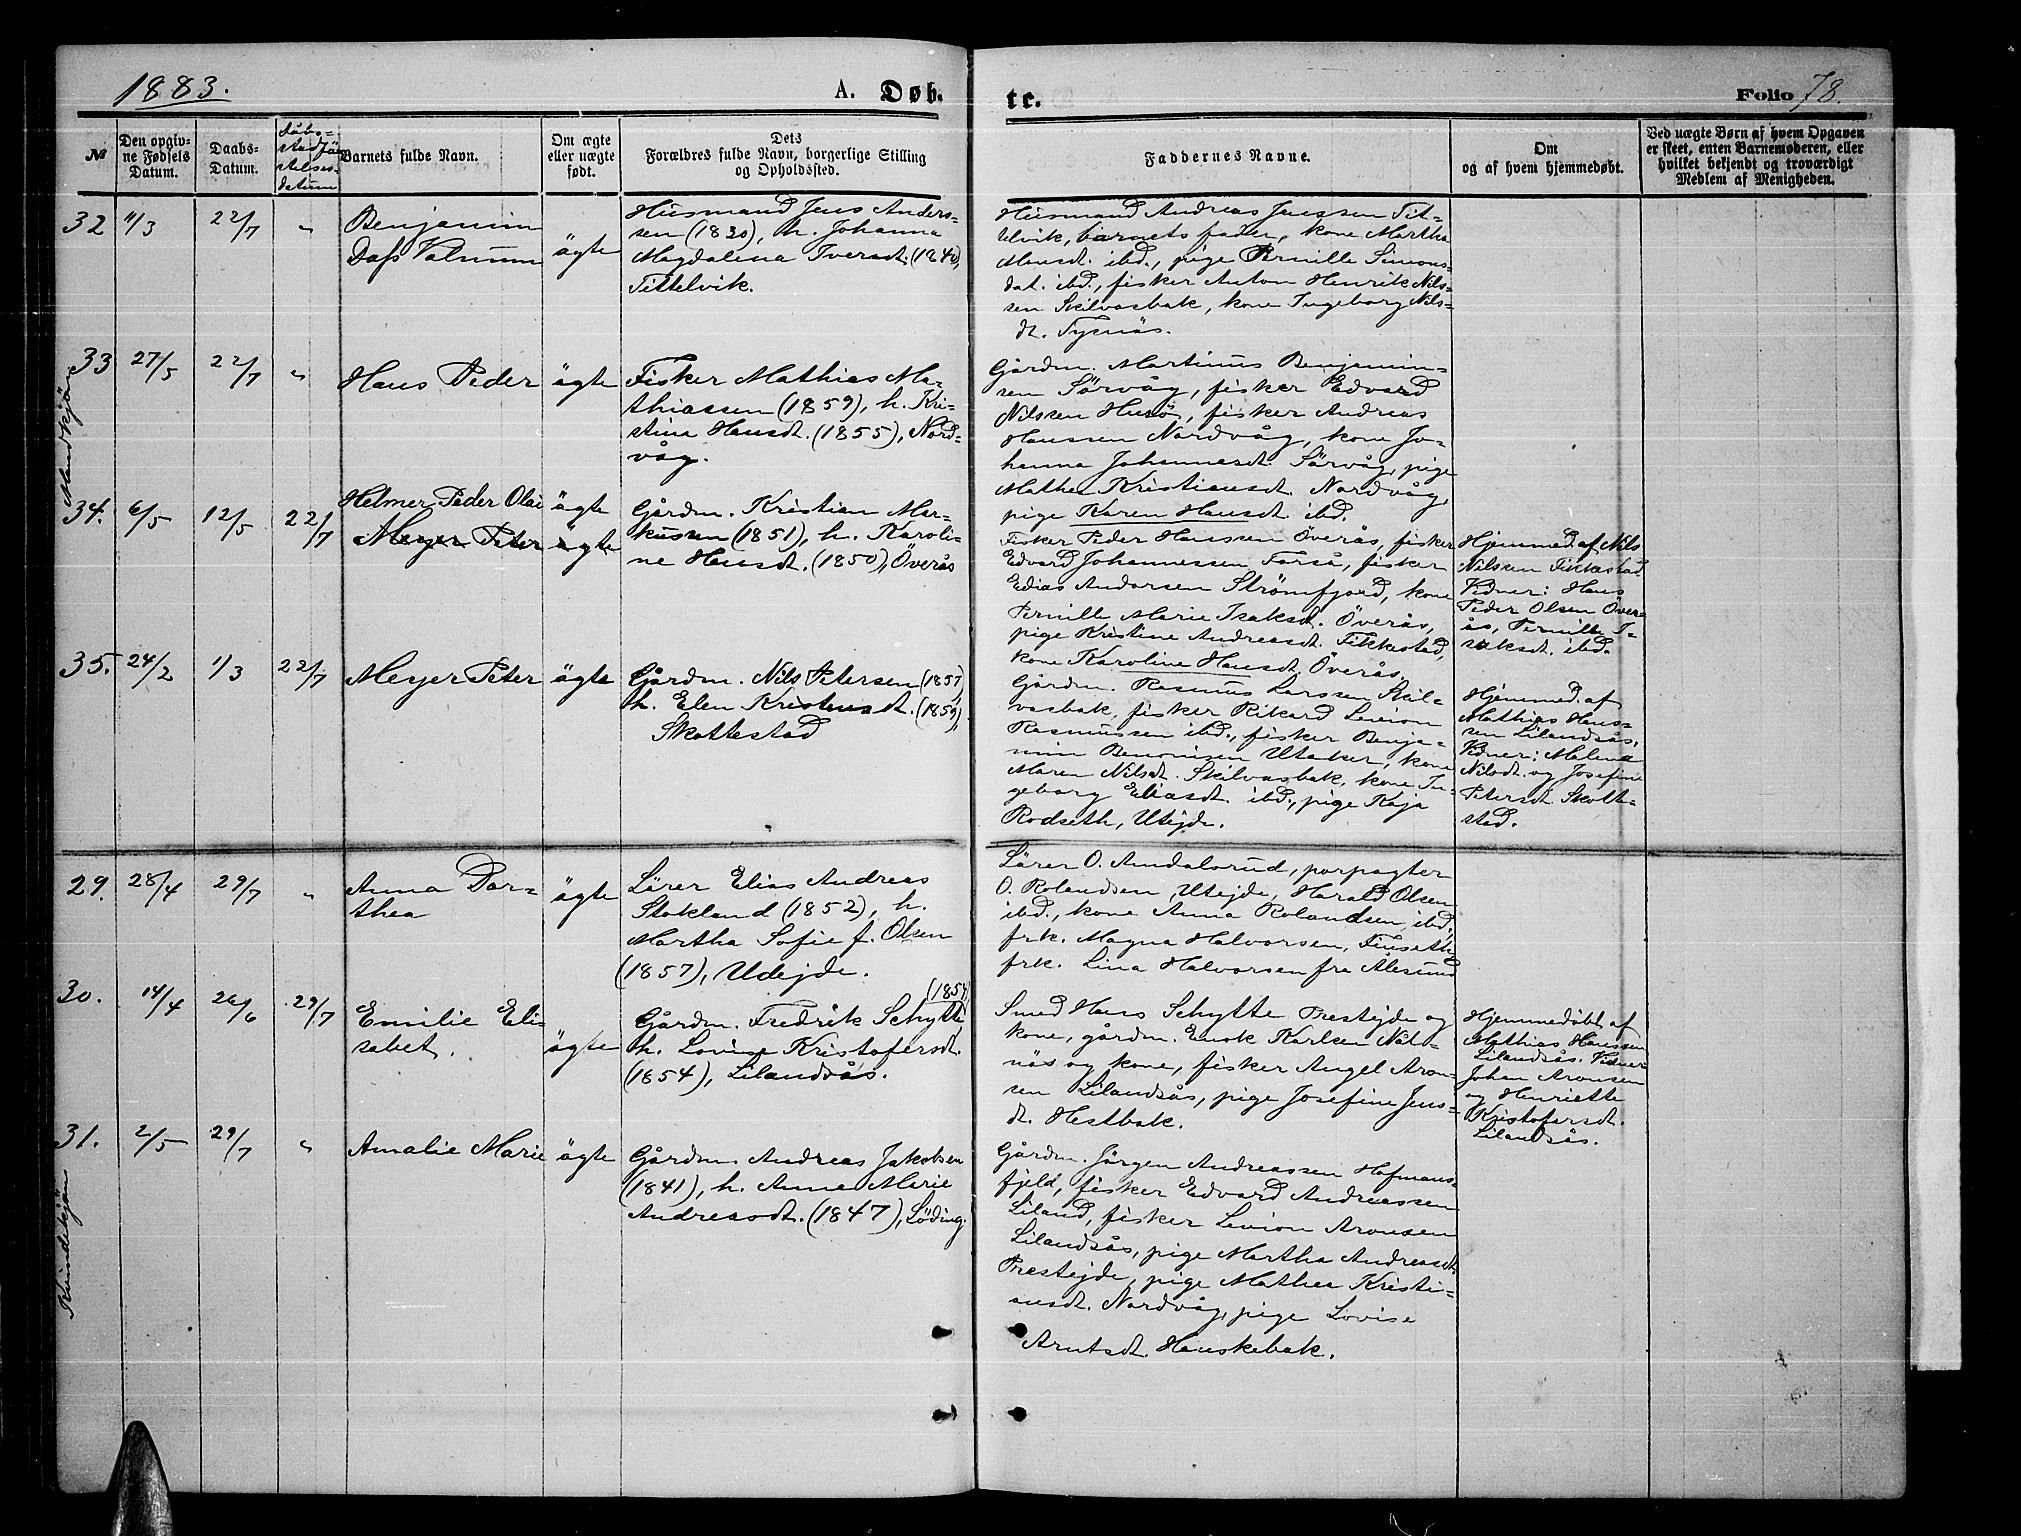 1883.
A. Døb-
te.
Folio 78.
№
Den opgiv-
ne Fødsels
Datum.
Daabs-
Datum.
dåbs-
stadfäs-
telses-
datum
Barnets fulde Navn.
Om ægte
eller uægte
født.
Dets
Forældres fulde Navn, borgerlige Stilling
og Opholdssted.
Faddernes Navne.
Om
og af hvem hjemmedøbt.
Ved uægte Børn af hvem Opgaven
er skeet, enten Barnemoderen, eller
hvilket bekjendt og troværdigt
Medlem af Menigheden.
Mandkjön
32 11/3 22/7 "
Benjamin
Dass Valnum
ägte
Husmand Jens Anders-
sen (1830), h. Johanna
Magdalena Iversdt. (1840),
Tittelvik.
Husmand Andreas Jenssen Tit-
telvik, barnets fader, kone Martha
Hansdt. ibd., pige Pernille Simons-
dat. ibd., fisker Anton Henrik Nils-
sen Skilvasbak, kone Ingeborg Nils-
dt. Tysnäs.
33 27/5 22/7 "
Hans Peder
ägte
Fisker Mathias Ma-
thiassen (1859), h. Kri-
stina Hansdt. (1855), Nord-
våg.
Gårdm. Martinus Benjamin-
sen Sörvåg, fisker Edvard
Nilssen Husö, fisker Andreas
Hanssen Nordvåg, kone Jo-
hanna Johannesdt. Sörvåg, pige
Mathea Kristiansdt. Nordvåg,
pige Karen Hansdt. ibd.
34. 6/5 12/5 22/7
Helmer Peder Olai
Meyer Peter
ägte
ägte
Gårdm. Kristian Mar-
kussen (1851), h. Karoli-
ne Hansdt. (1850), Överås
Fisker Peder Hanssen Överås, fisker
Edvard Johannessen Forså, fisker
Edias Andorsen Strömfjord, kone
Pernille Marie Isaksd. Överås,
pige Kristine Andreasdt. Fikkestad,
kone Karoline Hansdt. Överås.
Hjemmed. af Nils
Nilssen Fikkestad
Vidner: Hans
Peder Olsen Över-
ås, Pernille I-
saksdt. ibd.
35. 24/2 1/3 22/7
Meyer Peter
ägte
Gårdm. Nils Petersen (1857),
h. Elen Kristensdt. (1859),
Skottestad
Gårdm. Rasmus Larssen Skil-
vasbak, fisker Rikard Levion
Rasmussen ibd., fisker Benja-
min Benonisen Utaker, kone
Maren Nilsdt. Skilvasbak, kone In-
geborg Eliasdt. ibd., pige Kaja
Rodseth, Utejde.
Hjemmed. af
Mathias Hans-
sen Lilandsås.
Vidner: Malena
Nilsdt. og Josefine
Petersdt. Skotte-
stad.
Kvindekjön
29. 28/4 29/7 "
Anna Dor-
thea
ägte
Lärer Elias Andreas
Stokland (1852), h.
Martha Sofie f. Olsen
(1857), Udejde.
Lärer O. Andalorud, forpagter
O. Rolandsen Utejde, Harald Olsen
ibd., kone Anna Rolandsen ibd.,
frk. Magna Halvorsen, Finseth,
frk. Lina Halvorsen fra Ålesund
30. 14/4 26/6 29/7
Emilie Eli-
sabet.
ägte
(1854)
Gårdm. Fredrik Schytte
h. Lovise Kristofersdt.
(1854), Lilandsås.
Smed Hans Schytte Prestejde og
kone, gårdm. Enok Karlsen Nät-
näs og kone, fisker Angel Aron-
sen Lilandsås, pige Josefine Jens-
dt. Hestbak.
Hjemmedøbt af
Mathias Hanssen
Lilandsås. Vidner
Johan Aronsen
og Henriette
Kristofersdt.
Lilandsås.
31. 2/5 29/7 "
Amalie Marie
ägte
Gårdm. Andreas Jakobsen
(1841), h. Anne Marie
Andreasdt. (1847), Löding.
Gårdm. Jörgen Andreassen Hofmans-
fjeld, fisker Edvard Andreassen
Liland, fisker Levion Aronsen
Lilandsås, pige Martha Andreasdt.
Prestejde, pige Mathea Kristi-
ansdt. Nordvåg, pige Lovise
Arntsdt. Hanskebak.